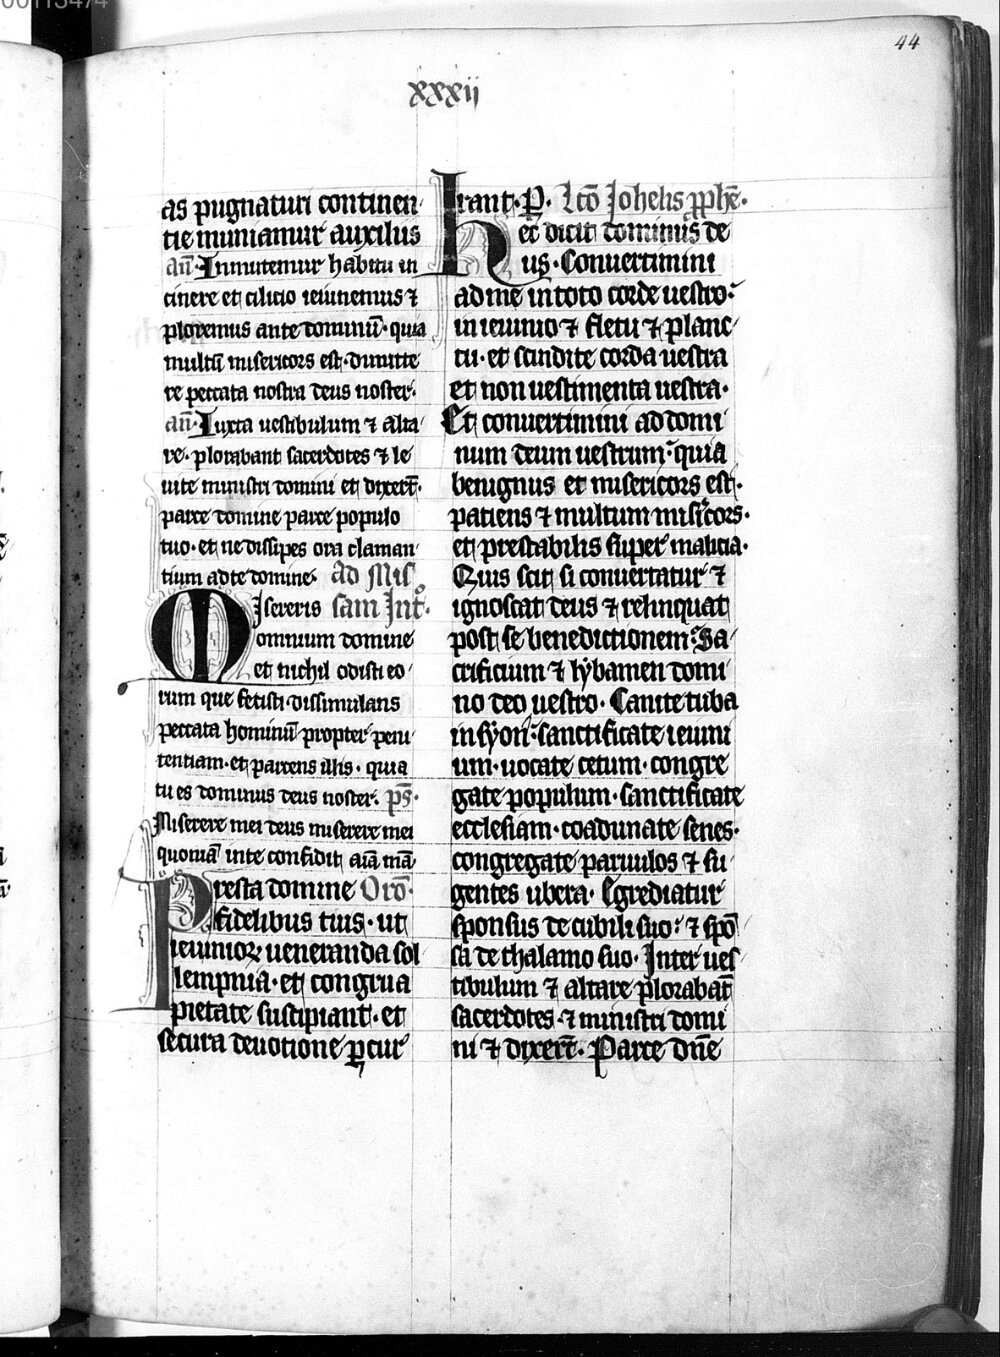 44
xxxij
as pugnaturi continen
tie muniamur auxiliis
añ· Inmutemur habitu in
cinere et cilicio ieiunemus ⁊
ploremus ante dominū· quia
multū misericors est· dimitte
re peccata nostra deus noster·
añ· Iuxta vestibulum ⁊ alta
re· plorabant sacerdotes ⁊ le
uite ministri domini et dixert̄·
parce domine parce populo
tuo· et ne dissipes ora claman
tium ad te domine· Ad Mis
Misereris sam Intͦ·
omnium domine
et nichil odisti eo
rum que fecisti· dissimulans
peccata hominū propter peni
tentiam· et parcens illis· quia
tu es dominus deus noster· ps̄·
Miserere mei deus miserere mei
quoniā in te confidit aīa mā
Presta domine Orō·
fidelibus tuis· ut
ieiuniorꝝ ueneranda sol
lempnia· et congrua
pietate suscipiant· et
secura deuotione ꝑcur
rant· P̲· Lcō Johelis ꝓphē·
Hec dicit dominus de
us· Conuertimini
ad me in toto corde uestro·
in ieiunio ⁊ fletu ⁊ planc
tu· et scindite corda uestra
et non uestimenta uestra·
Et conuertimini ad domi
num deum uestrum· quia
benignus et misericors est·
patiens ⁊ multum misicors·
et prestabilis super malicia·
Quis scit si conuertatur ⁊
ignoscat deus ⁊ relinquat
post se benedictionem· Sa
crificium ⁊ lybamen domi
no deo uestro· Canite tuba
in syon· sanctificate ieiuni
um· uocate cetum· congre
gate populum· sanctificate
ecclesiam· coadunate senes·
congregate paruulos ⁊ su
gentes ubera· Egrediatur
sponsus de cubili suo· ⁊ spō
sa de thalamo suo· Inter ues
tibulum ⁊ altare plorabāt
sacerdotes ⁊ ministri domi
ni ⁊ dixert̄· Parce dn̄e